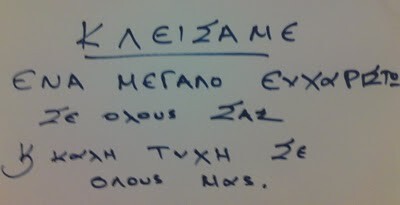 ΚΛΕΙΣΑΜΕ
ΕΝΑ ΜΕΓΑΛΟ ΕΥΧΑΡΙΣΤΩ
ΣΕ ΟΛΟυς ΣΑΣ
& ΚΑΛΗ ΤΥΧΗ ΣΕ
ΟΛΟυς ΜΑς.